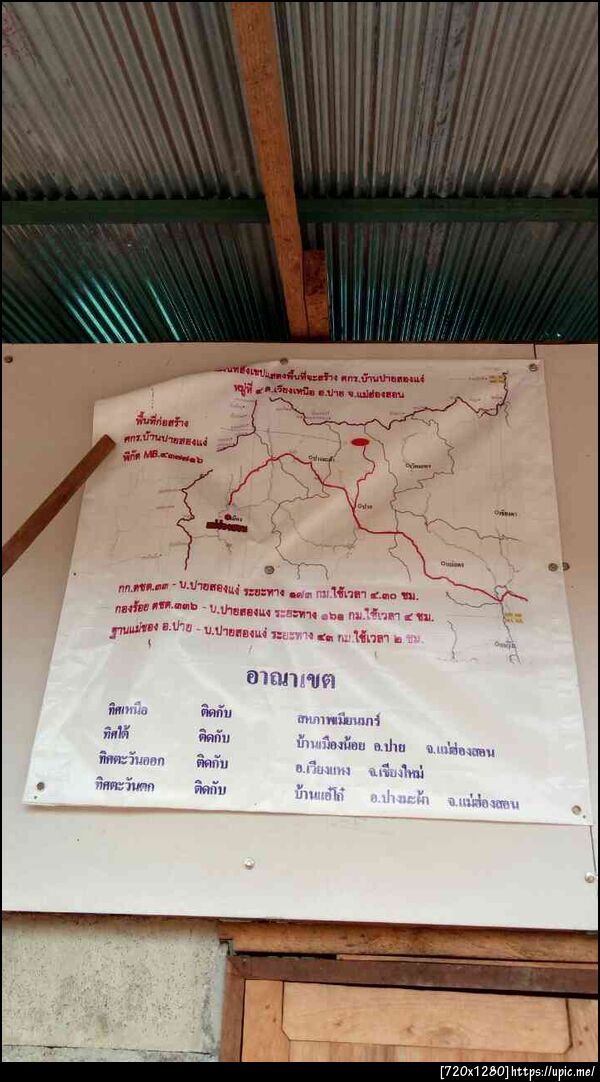 แสดงพื้นที่จะสร้าง ศกร.บ้านปายสองแง่
หมู่ที่ ๔ ต.เวียงเหนือ อ.ปาย จ.แม่ฮ่องสอน
พื้นที่ก่อสร้าง
ศกร.บ้านปายสองแง่
พิกัด MB.๔๓๗๗๑๖
ปางมะผ้า
เวียงแหง
ปาย
เมือง
แม่ฮ่องสอน
แม่แตง
กก.ตชด.๓๓ - บ.ปายสองแง่ ระยะทาง ๑๗๓ กม.ใช้เวลา ๔.๓๐ ชม.
กองร้อย ตชด.๓๓๖ - บ.ปายสองแง่ ระยะทาง ๑๖๑ กม.ใช้เวลา ๔ ชม.
ฐานแม่ของ อ.ปาย - บ.ปายสองแง่ ระยะทาง ๔๓ กม.ใช้เวลา ๒ ชม.
อาณาเขต
ทิศเหนือ ติดกับ สหภาพเมียนมาร์
ทิศใต้ ติดกับ บ้านเมืองน้อย อ.ปาย จ.แม่ฮ่องสอน
ทิศตะวันออก ติดกับ อ.เวียงแหง จ.เชียงใหม่
ทิศตะวันตก ติดกับ บ้านแอโก๋ อ.ปางมะผ้า จ.แม่ฮ่องสอน
[720x1280]https://upic.me/